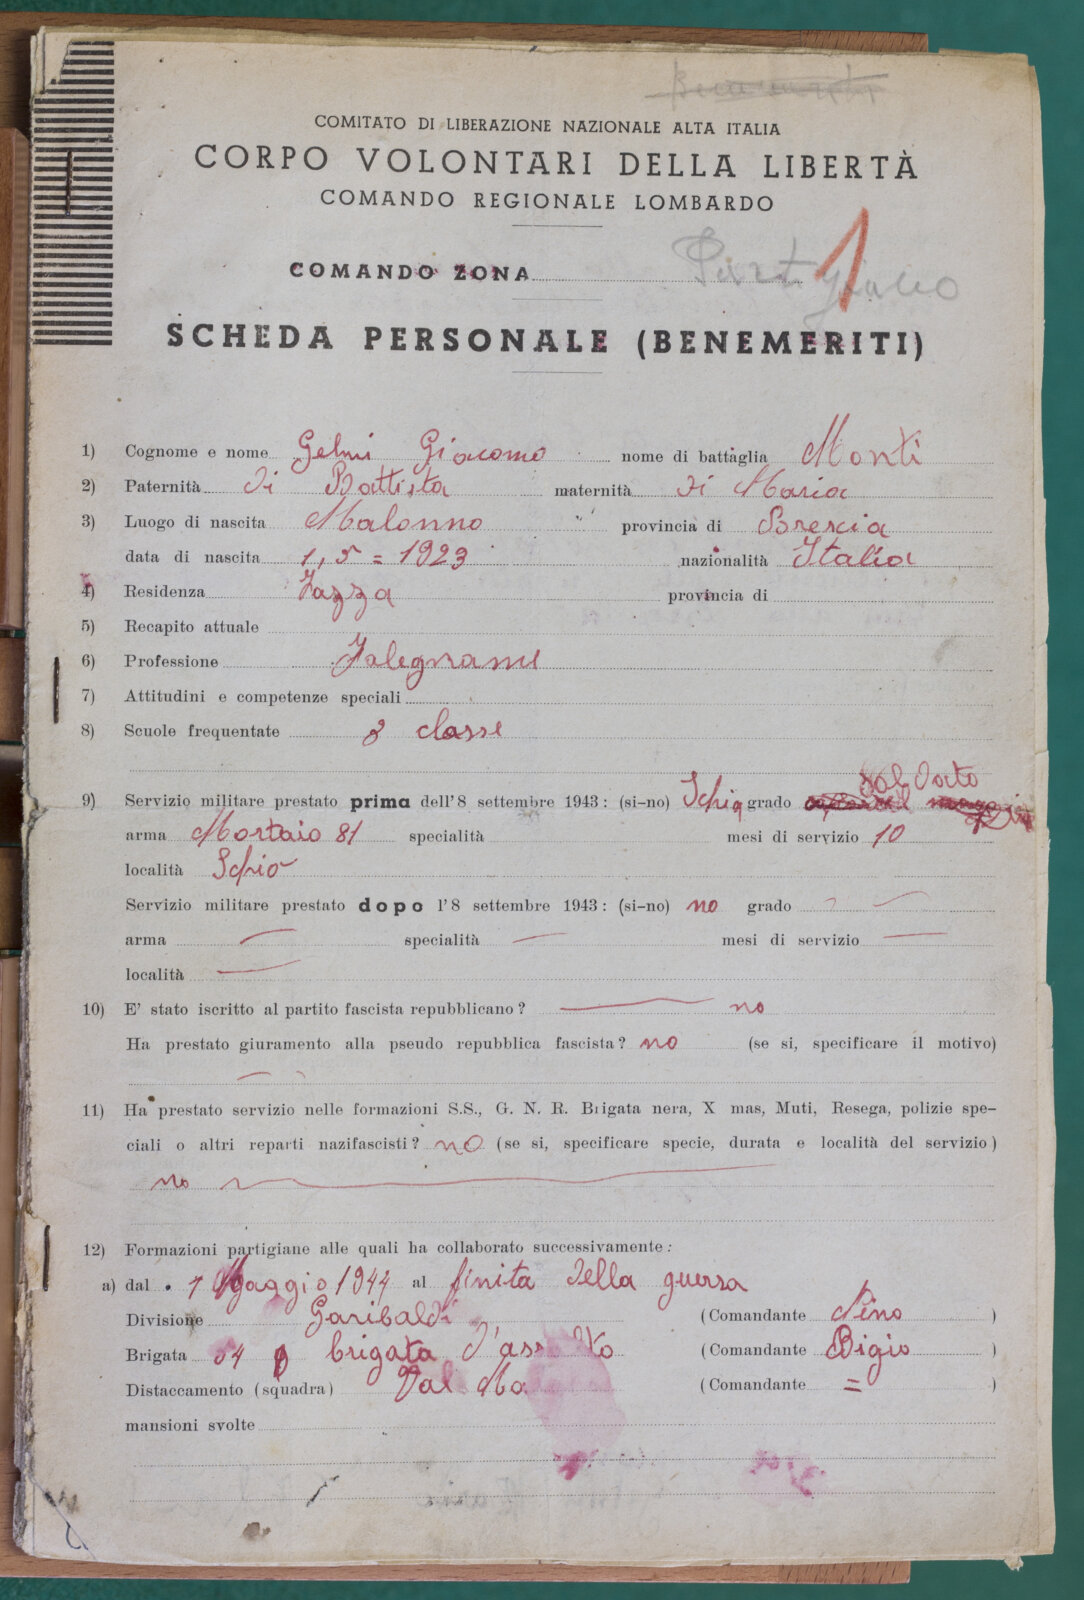 Benemerito
COMITATO DI LIBERAZIONE NAZIONALE ALTA ITALIA
CORPO VOLONTARI DELLA LIBERTÀ
COMANDO REGIONALE LOMBARDO
COMANDO ZONA Partigiano 1
SCHEDA PERSONALE (BENEMERITI)
1) Cognome e nome Gelmi Giacomo nome di battaglia Monti
2) Paternità di Battista maternità di Maria
3) Luogo di nascita Malonno provincia di Brescia
data di nascita 1, 5 = 1923 nazionalità Italia
4) Residenza Zazza provincia di
5) Recapito attuale
6) Professione Falegname
7) Attitudini e competenze speciali
8) Scuole frequentate 3 classe
9) Servizio militare prestato prima dell'8 settembre 1943: (si-no) Schio grado Soldato
arma Mortaio 81 specialità mesi di servizio 10
località Schio
Servizio militare prestato dopo l'8 settembre 1943: (si-no) no grado
arma specialità mesi di servizio
località
10) E' stato iscritto al partito fascista repubblicano? no
Ha prestato giuramento alla pseudo repubblica fascista? no (se si, specificare il motivo)
11) Ha prestato servizio nelle formazioni S.S., G. N. R. Brigata nera, X mas, Muti, Resega, polizie spe-
ciali o altri reparti nazifascisti? no (se si, specificare specie, durata e località del servizio)
no
12) Formazioni partigiane alle quali ha collaborato successivamente:
a) dal 1 Maggio 1944 al finita della guerra
Divisione Garibaldi (Comandante Nino )
Brigata 54 brigata d'assalto (Comandante Bigio )
Distaccamento (squadra) Val (Comandante = )
mansioni svolte